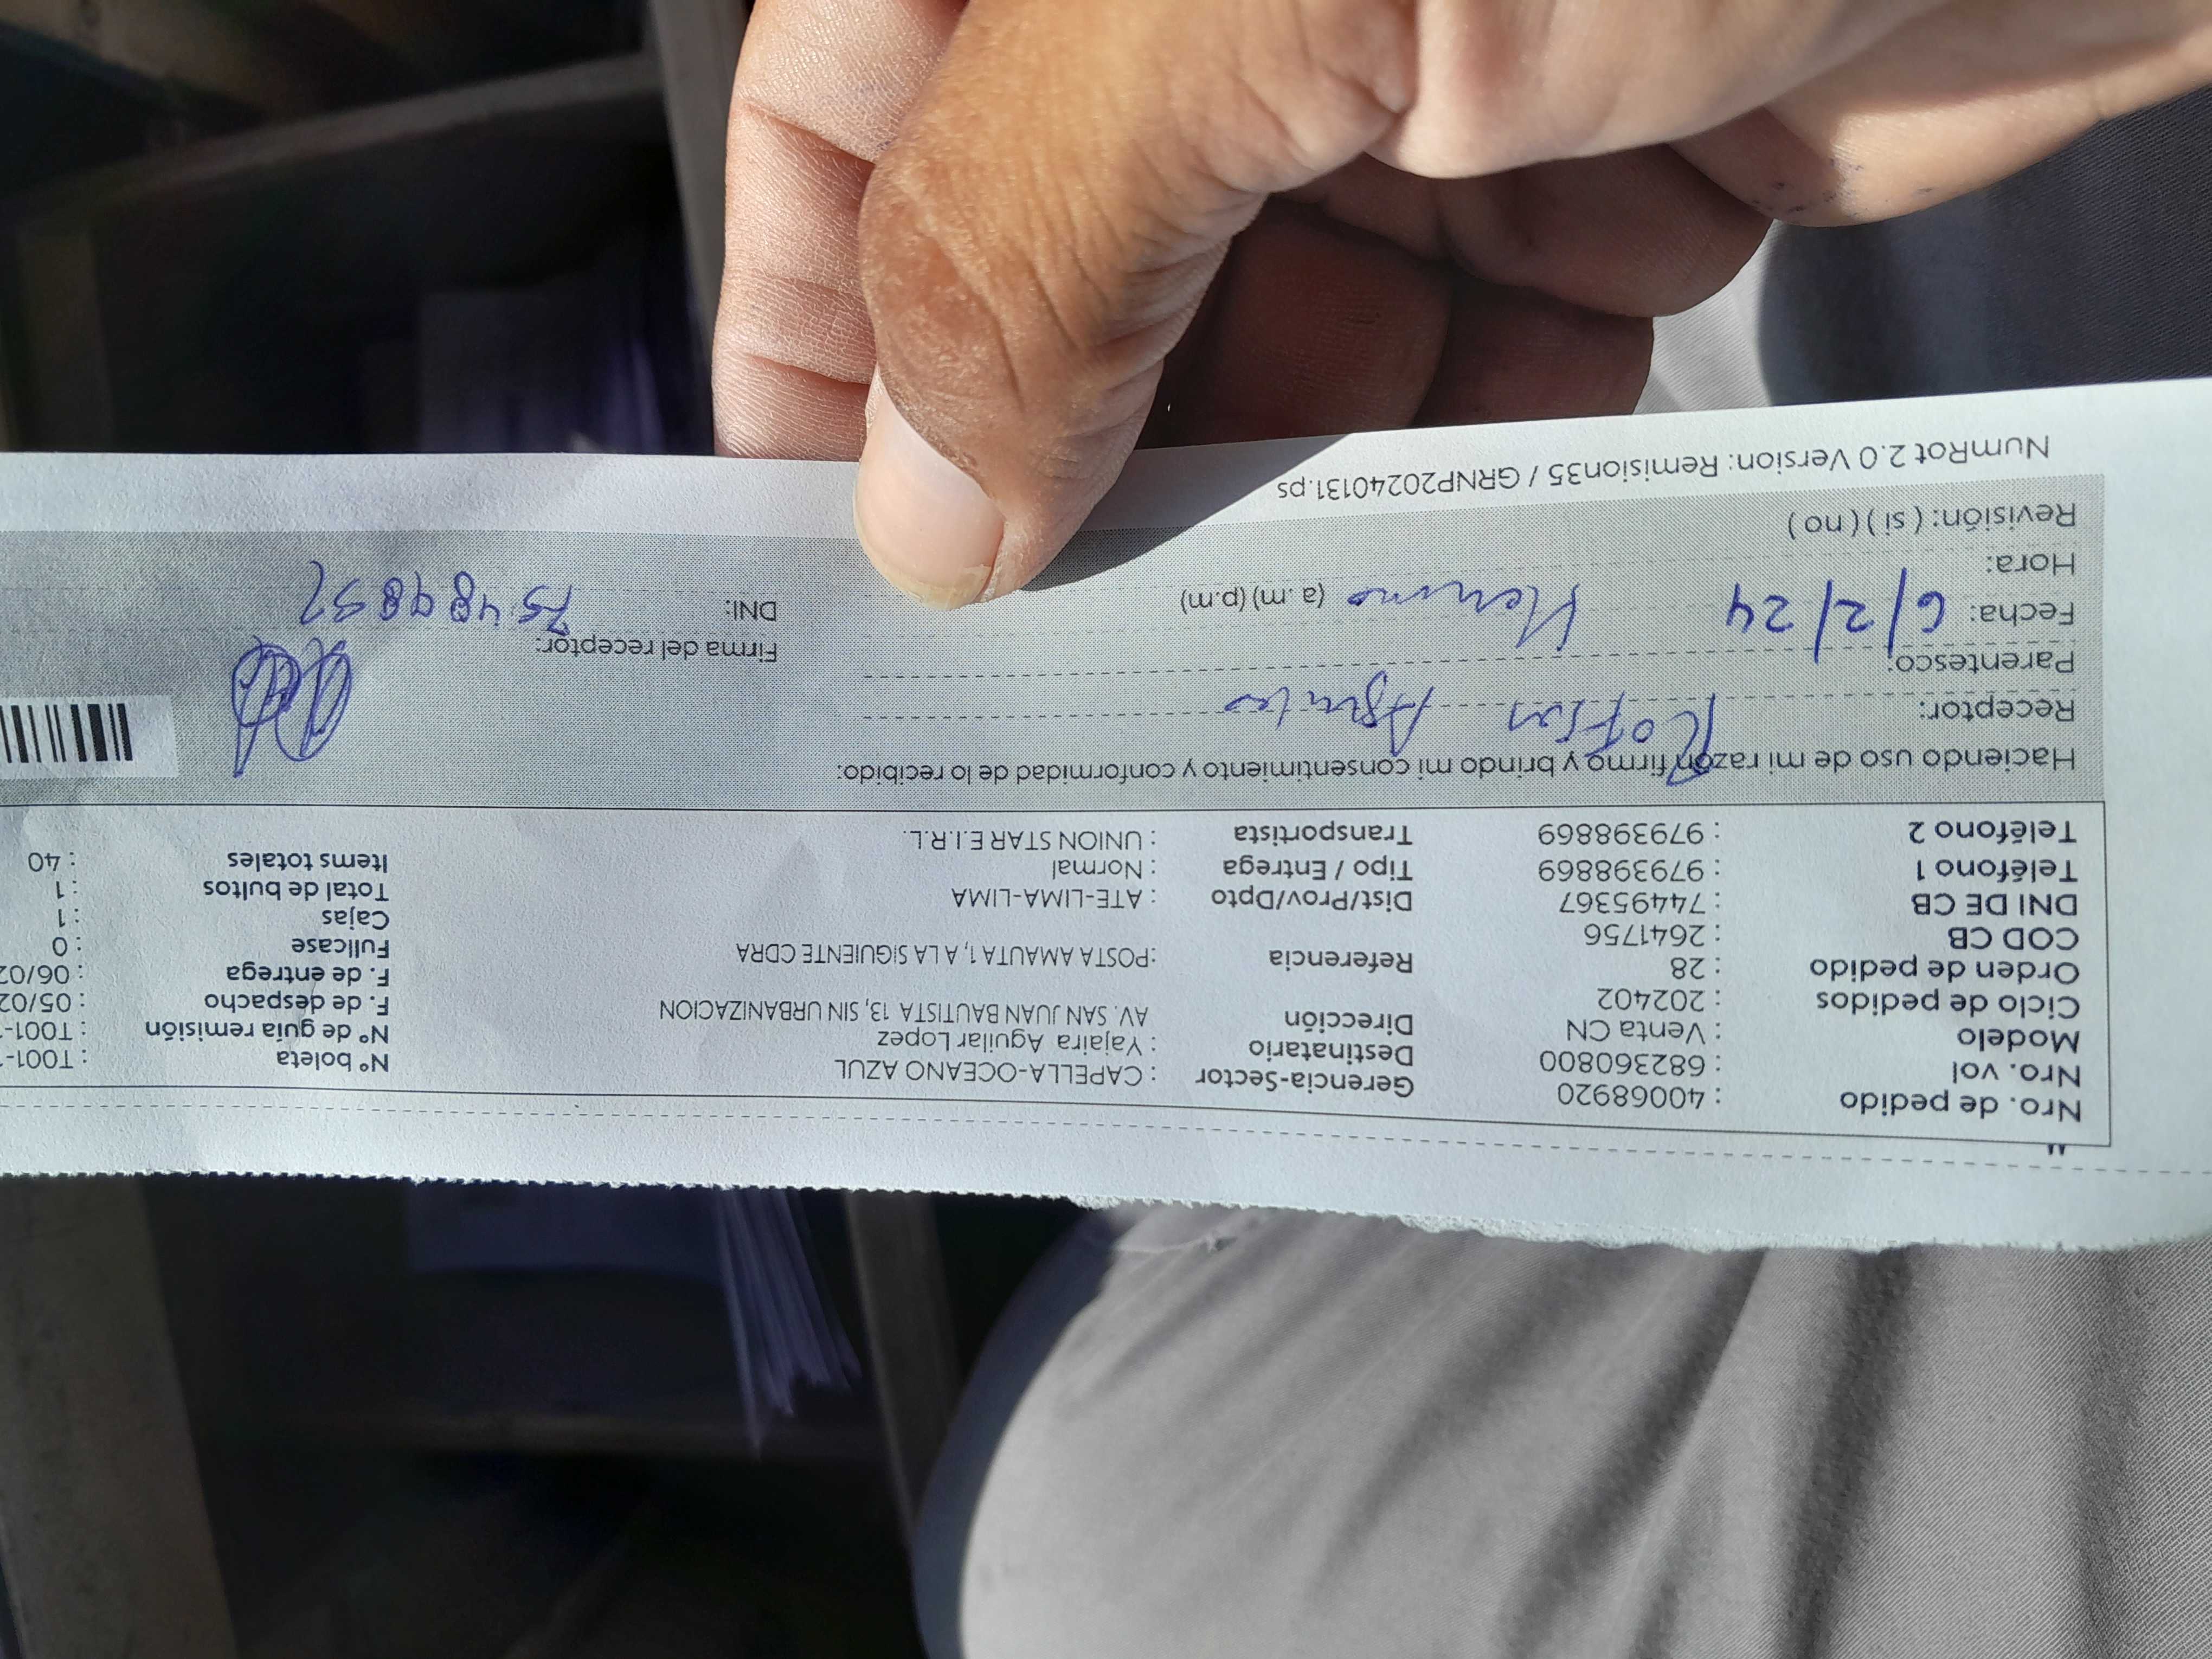 Nro. de pedido : 40068920 Gerencia-Sector : CAPELLA-OCEANO AZUL Nº boleta : T001-
Nro. vol : 682360800 Destinatario : Yajaira Aguilar Lopez Nº de guía remisión : T001-
Modelo : Venta CN Dirección AV. SAN JUAN BAUTISTA 13, SIN URBANIZACION F. de despacho : 05/02
Ciclo de pedidos : 202402 F. de entrega : 06/02
Orden de pedido : 28 Referencia :POSTA AMAUTA 1, A LA SIGUIENTE CDRA Fullcase : 0
COD CB : 2641756 Cajas : 1
DNI DE CB : 74495367 Dist/Prov/Dpto : ATE-LIMA-LIMA Total de bultos : 1
Teléfono 1 : 979398869 Tipo / Entrega : Normal Items totales : 40
Teléfono 2 : 979398869 Transportista : UNION STAR E.I.R.L.
Haciendo uso de mi razón firmo y brindo mi consentimiento y conformidad de lo recibido:
Receptor:
Parentesco: Firma del receptor:
Fecha: 6/2/24 DNI: 75489852
Hora: (a.m) (p.m)
Revisión: ( si ) ( no )
NumRot 2.0 Version: Remision35 / GRNP20240131.ps